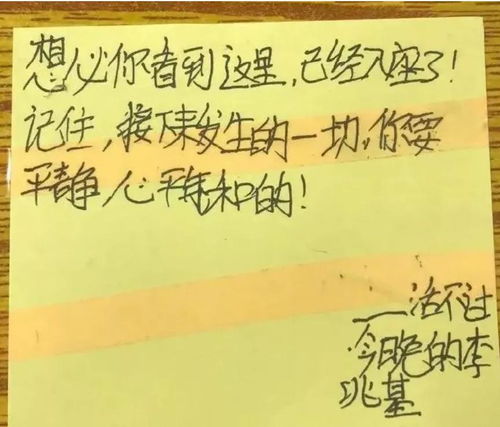 想必你看到这里，已经入座了！
记住，接下来发生的一切，你要
平静心平气和的！
——活不过
今晚的李
兆基